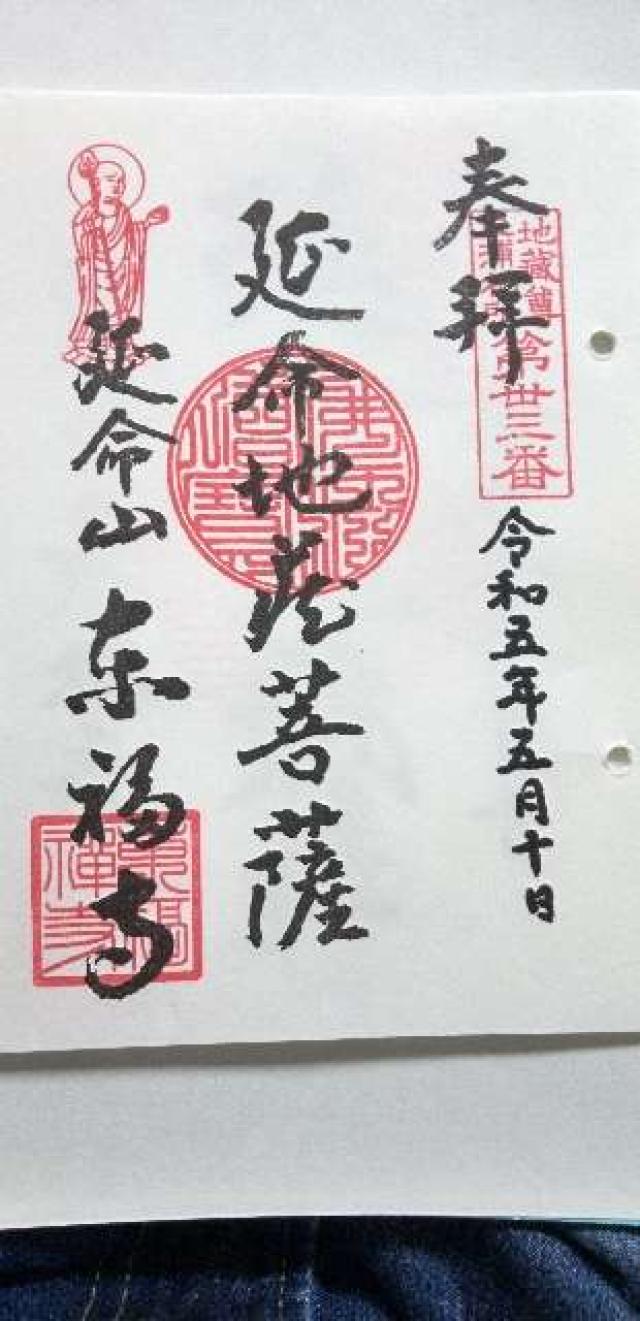 奉拝
地蔵尊
第卅三番
令和五年五月十日
延命地蔵菩薩
延命山
東福寺
東福禅寺